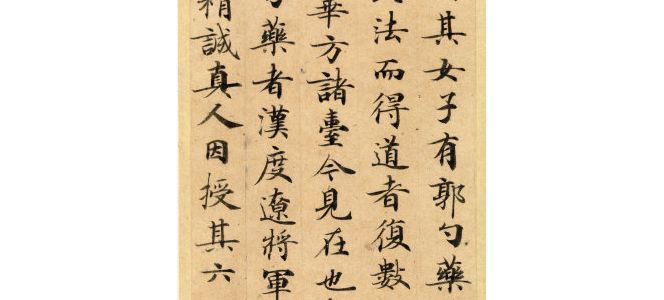 其女子有郭勺藥
法而得道者復數
華方諸臺今見在也
藥者漢度遼將軍
精誠真人因授其六